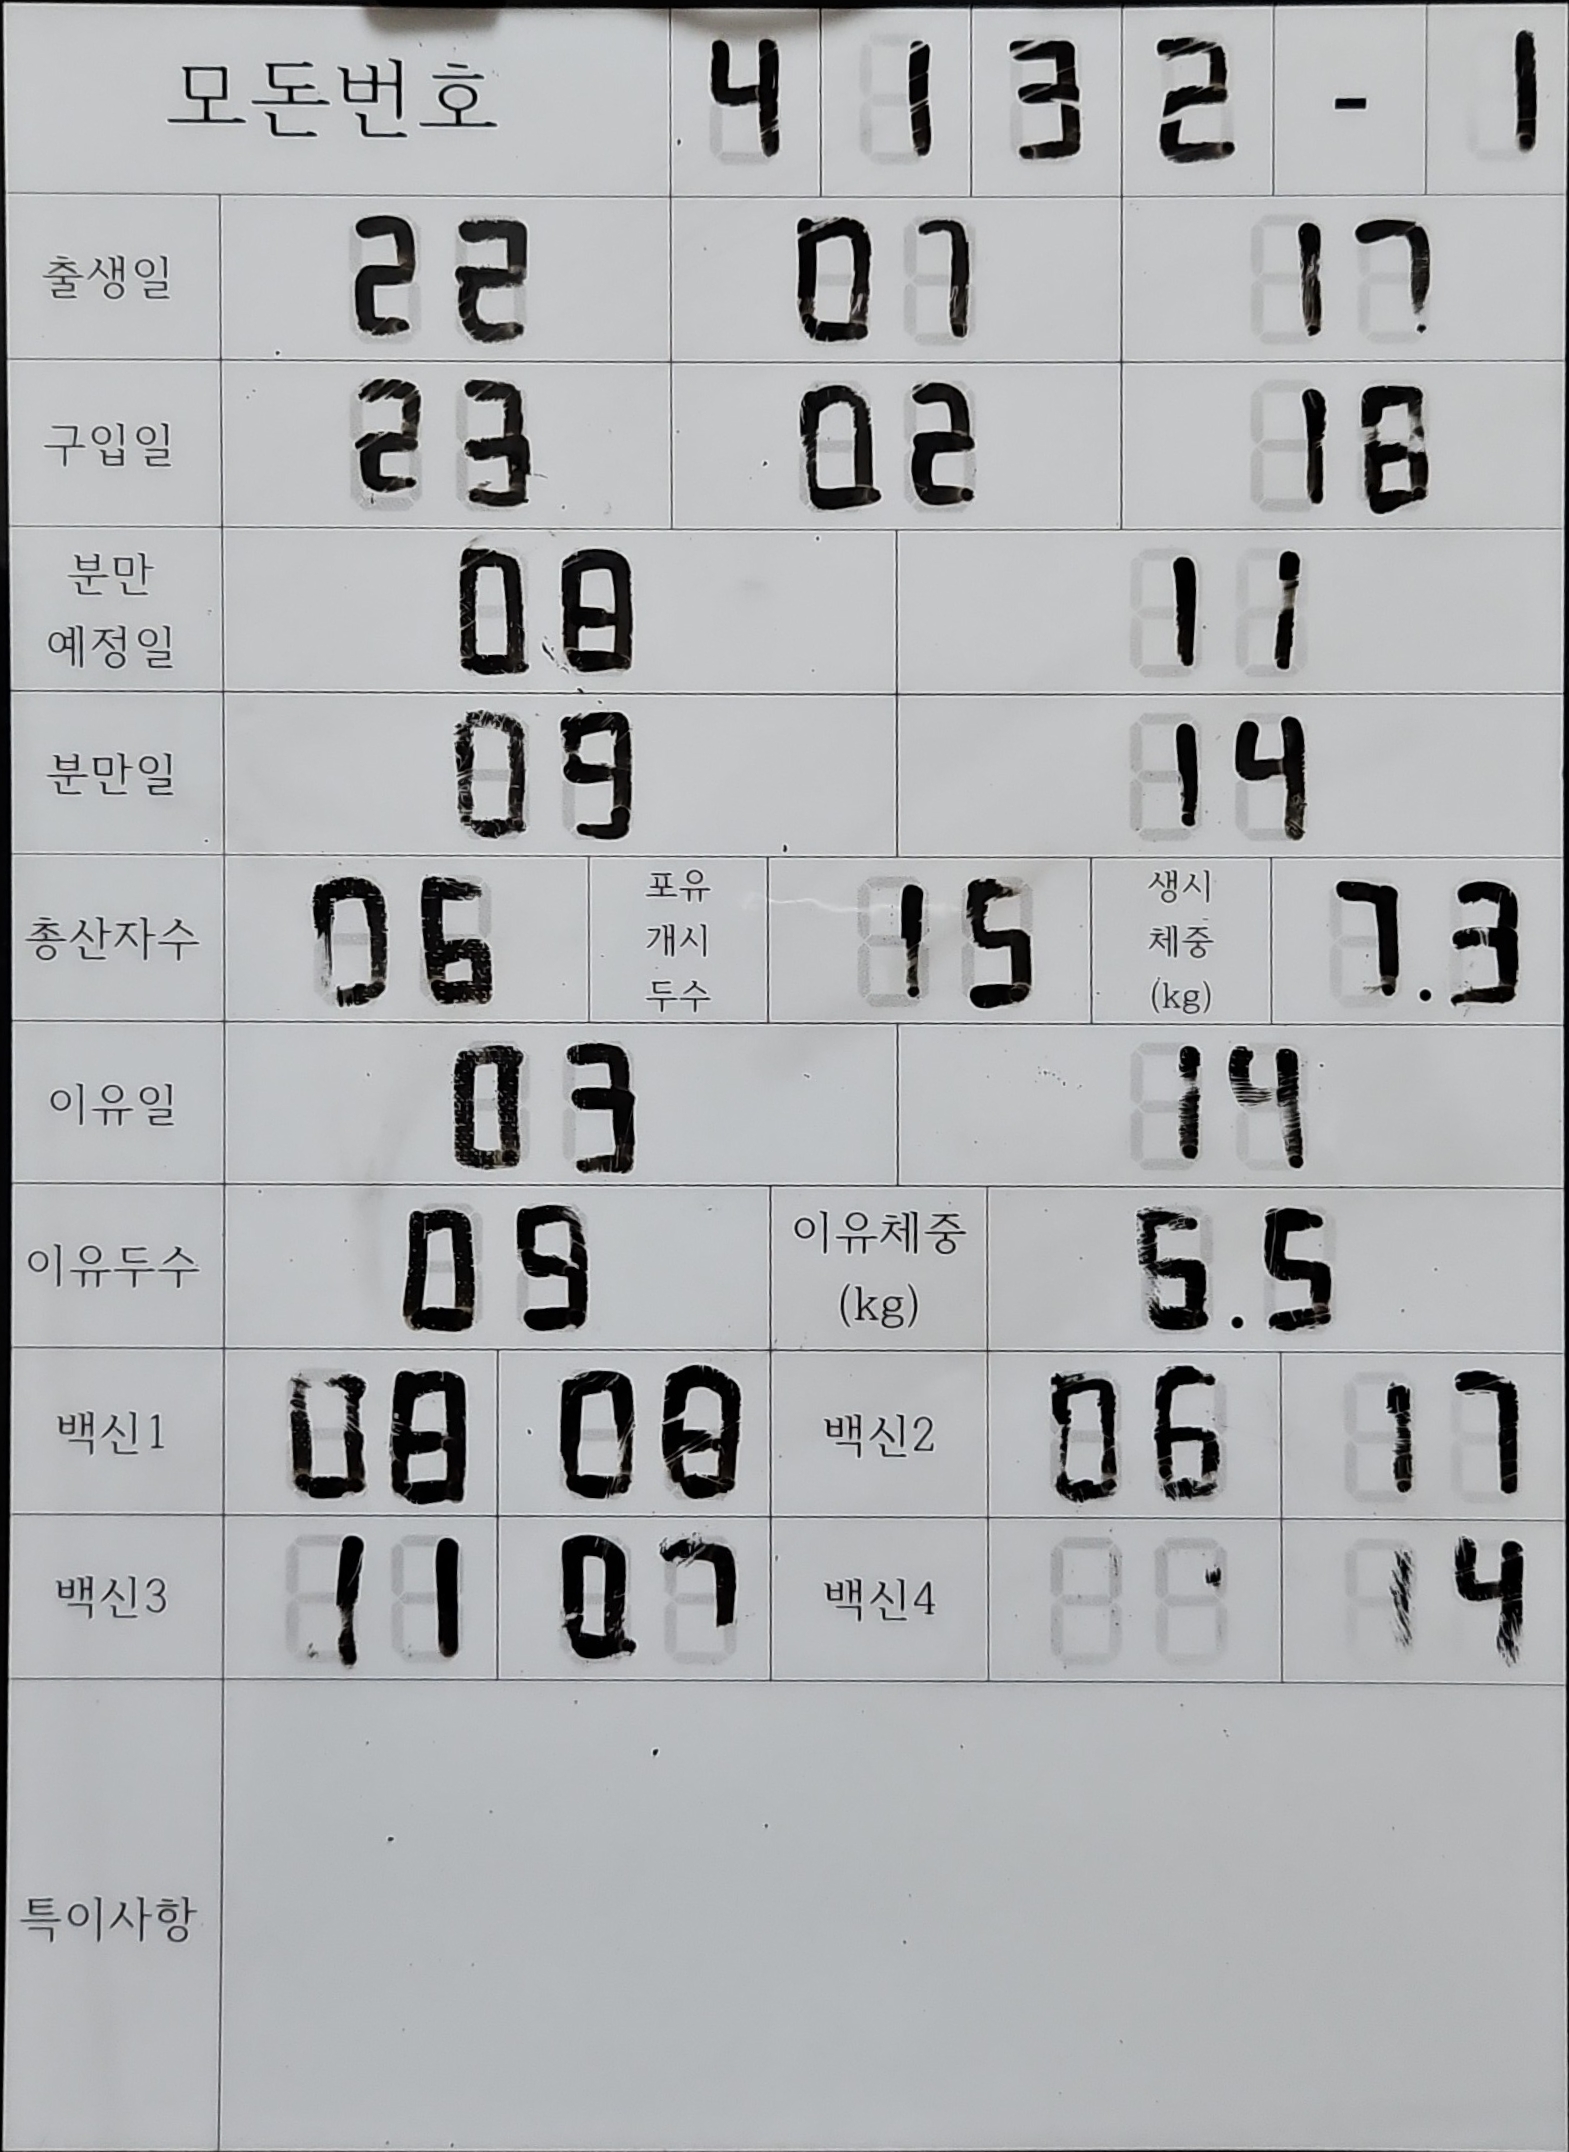 모돈번호 4132-1
출생일 22 07 17
구입일 23 02 18
분만 예정일 08 11
분만일 09 14
총산자수 06 포유 개시 두수 15 생시 체중 (kg) 7.3
이유일 03 14
이유두수 09 이유체중 (kg) 6.5
백신1 08 08 백신2 06 17
백신3 11 07 백신4 14
특이사항